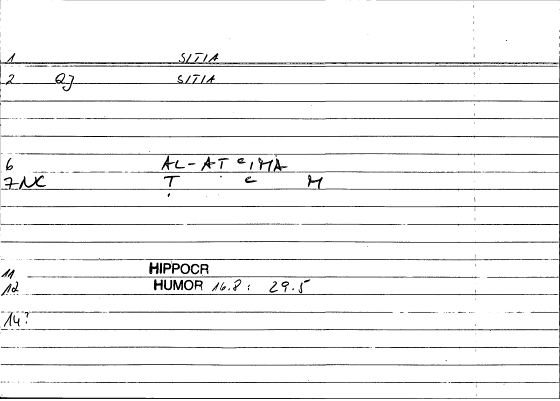 1 SITIA
2 QJ SITIA
6 AL-ATʿIMA
7 NC Ṭ ʿ M
11 HIPPOCR
12 HUMOR 16.8: 29.5
14?